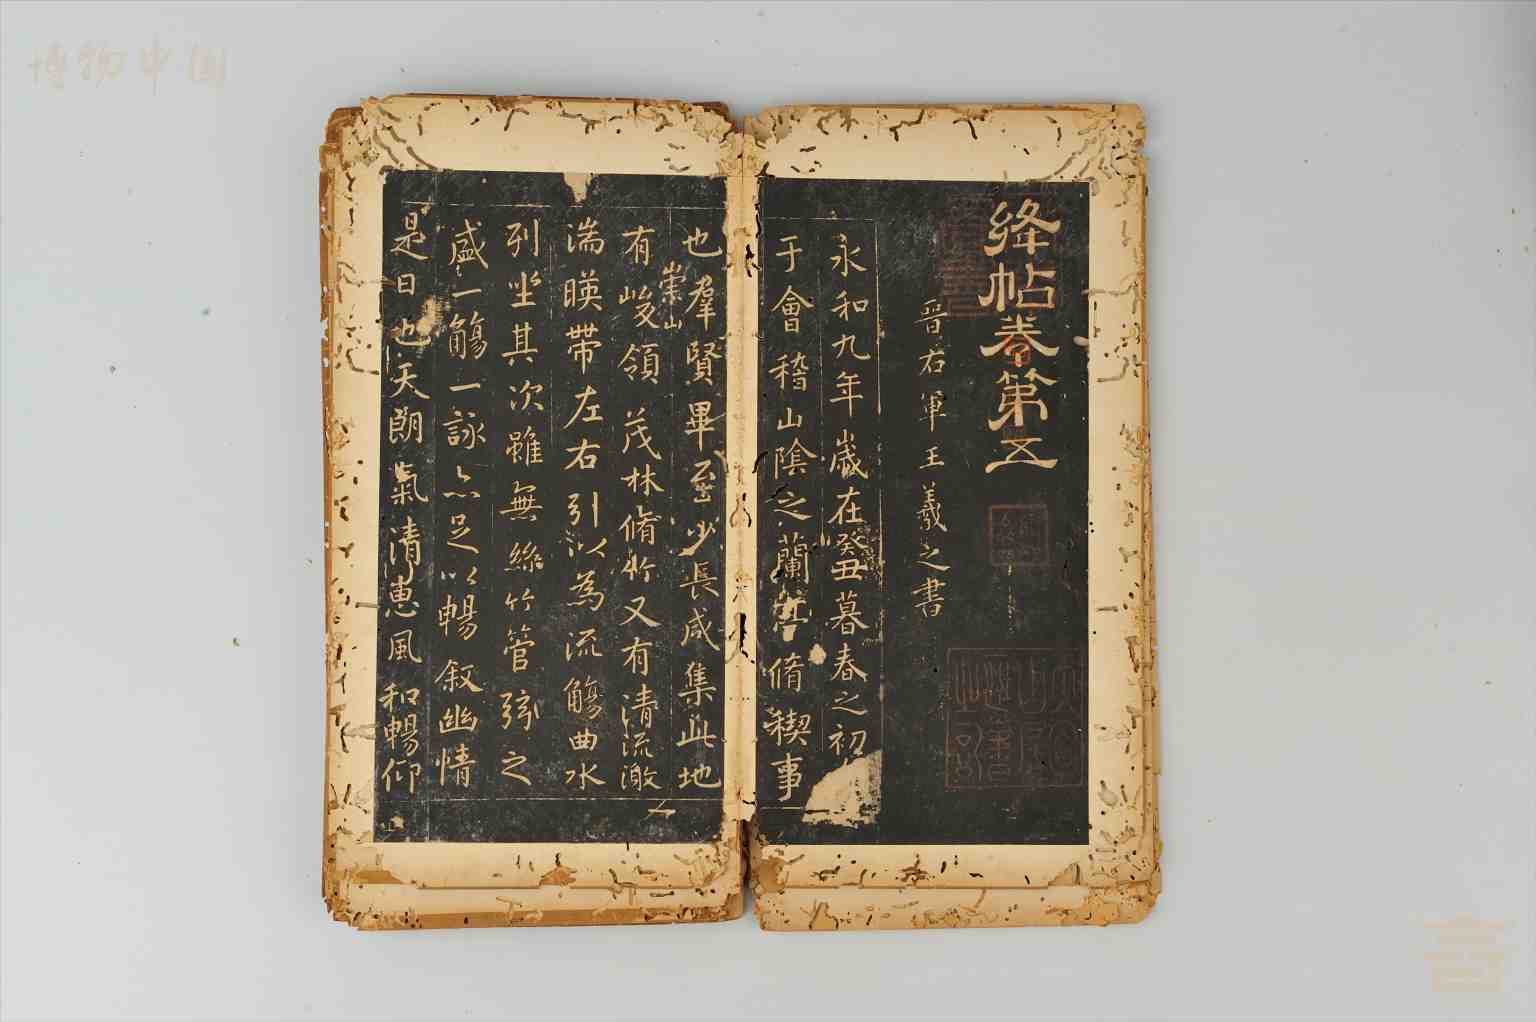 博物中国
绛帖卷第五
晋右軍王羲之書
永和九年歲在癸丑暮春之初
于會稽山陰之蘭亭脩稧事
也羣賢畢至少長咸集此地
有崇山峻領茂林脩竹又有清流激
湍暎帶左右引以為流觴曲水
列坐其次雖無絲竹管弦之
盛一觴一詠亦足以暢叙幽情
是日也天朗氣清惠風和暢仰